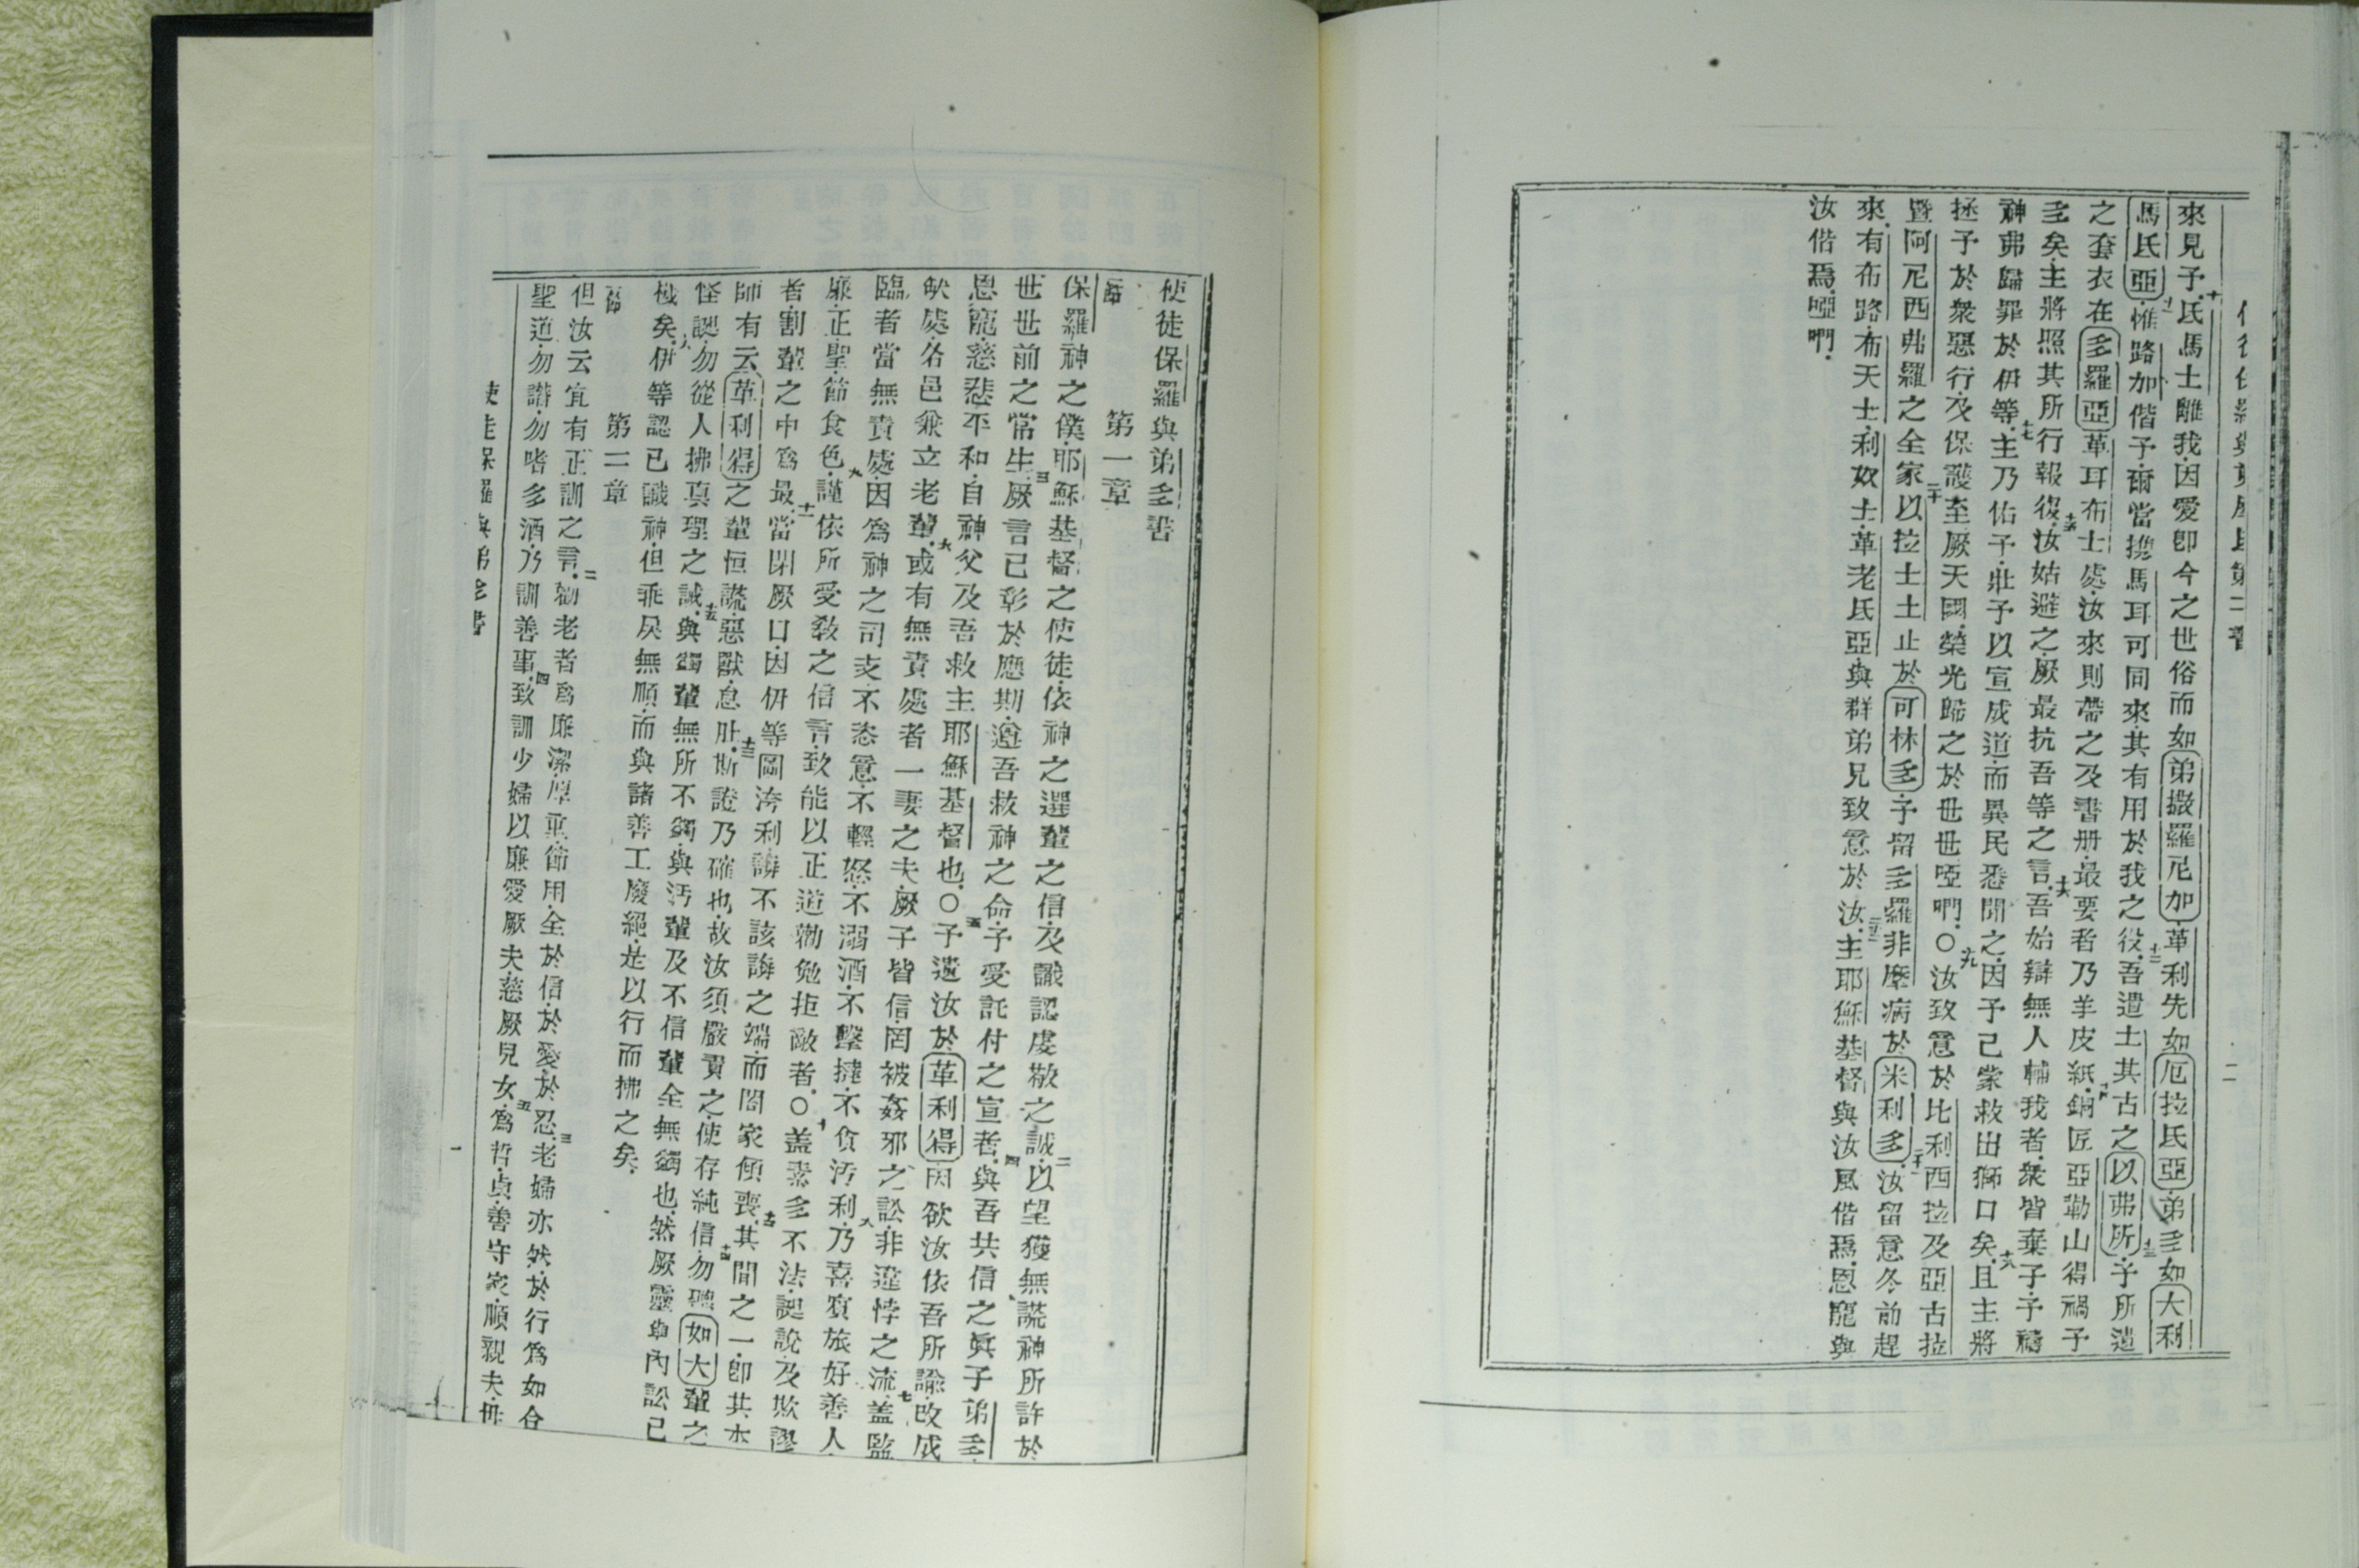 來見予十氐馬士離我因愛卽今之世俗而如弟撒羅尼加革利先如厄拉氐亞弟多如大利
馬氐亞十一惟路加偕予爾當攜馬耳可同來其有用於我之役十二吾遣士其古之以弗所十三予所遺
之套衣在多羅亞革耳布士處汝來則帶之及書册最要者乃羊皮紙十四銅匠亞勒山得禍予
多矣主將照其所行報復十五汝姑避之厥最抗吾等之言十六吾始辯無人輔我者衆皆棄予予禱
神弗歸罪於伊等十七主乃佑予壯予以宣成道而異民悉聞之因予已蒙救出獅口矣十八且主將
拯予於衆惡行及保護至厥天國榮光歸之於世世啞門○十九汝致意於比利西拉及亞古拉
暨阿尼西弗羅之全家二十以拉士士止於可林多予留多羅非摩病於米利多二十一汝留意冬前趕
來有布路布天士利奴士革老氐亞與群弟兄致意於汝二十二主耶穌基督與汝風偕焉恩寵與
汝偕焉啞門
使徒保羅與弟多書
第一章
一節保羅神之僕耶穌基督之使徒依神之選輩之信及識認虔敬之誠二以望獲無謊神所許於
世世前之常生三厥言已彰於應期遵吾救神之命予受託付之宣者四與吾共信之眞子弟多
恩寵慈悲平和自神父及吾救主耶穌基督也○五予遺汝於革利得因欲汝依吾所諭改成
缺處各邑兼立老輩六或有無責處者一妻之夫厥子皆信罔被姦邪之訟非違悖之流七盖監
臨者當無責處因爲神之司支不恣意不輕怒不溺酒不擊撻不貪汚利八乃喜賓旅好善人
廉正聖節食色九謹依所愛敎之信言致能以正道勸勉拒敵者○十盖素多不法謊說及欺謬
者割輩之中爲最十一當閉厥口因伊等圖洿利講不該誨之端而闔家傾喪十二其間之一卽其本
師有云革利得之輩恒謊惡獸怠肚十三斯證乃確也故汝須嚴責之使存純信十四勿聽如大輩之
怪誕勿從人拂真理之誡十五與蠲輩無所不蠲與汚輩及不信輩全無蠲也然厥靈與內訟已
汚矣十六伊等認已識神但乖戾無順而與諸善工廢絕是以行而拂之矣
第二章
一節但汝云宜有正訓之言二勸老者爲廉潔厚重節用全於信於愛於忍三老婦亦然於行爲如合
聖道勿譖勿嗜多酒乃訓善事四致訓少婦以廉愛厥夫慈厥兒女五爲哲貞善守家順親夫毋
使徒保羅與弟多書
一